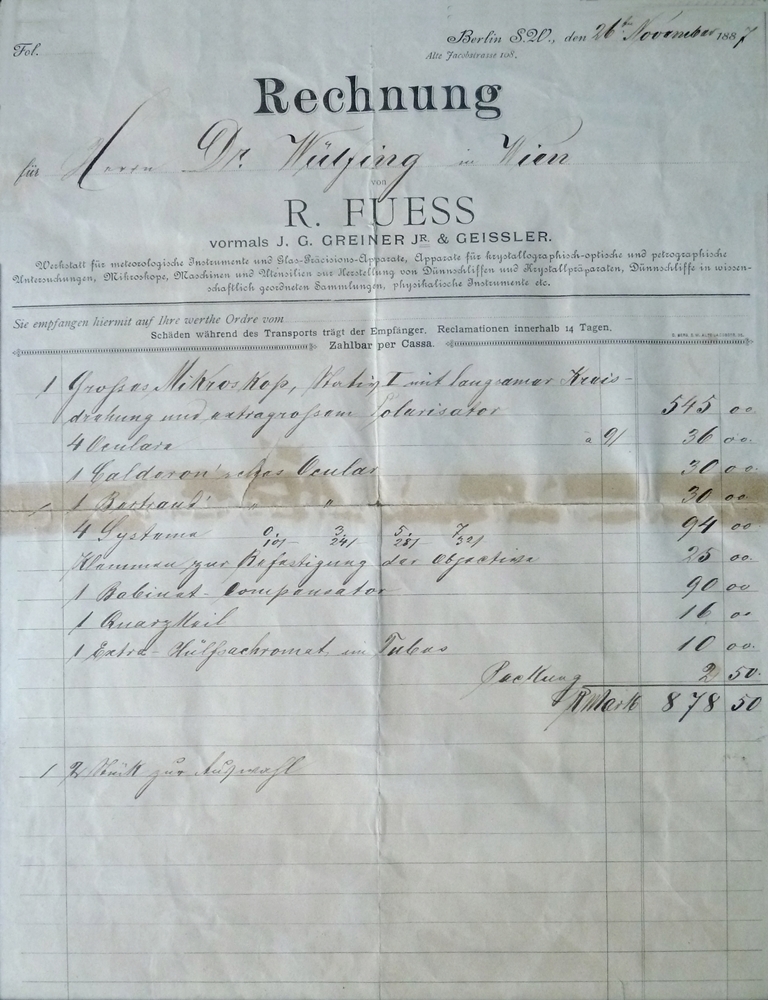 Fol.
Berlin S.W., den 26t November 1887
Alte Jacobstrasse 108.
Rechnung
für Herrn Dr. Wülfing in Wien
von
R. FUESS
vormals J. G. GREINER JR. & GEISSLER.
Werkstatt für meteorologische Instrumente und Glas-Präcisions-Apparate, Apparate für krystallographisch-optische und petrographische
Untersuchungen, Mikroskope, Maschinen und Utensilien zur Herstellung von Dünnschliffen und Krystallpräparaten, Dünnschliffe in wissen-
schaftlich geordneten Sammlungen, physikalische Instrumente etc.
Sie empfangen hiermit auf Ihre werthe Ordre vom
Schäden während des Transports trägt der Empfänger. Reclamationen innerhalb 14 Tagen.
Zahlbar per Cassa.
1 Grosses Mikroskop, Stativ I mit langsamer Kreis-
drehung und extragrossem Polarisator 545 00
4 Oculare à 9/ 36 00.
1 Calderon'sches Ocular 30 00.
1 Bertrand' " " 30 00.
4 Systeme 0/10/- 3/24/ 5/28/ 7/32/ 94 00
Klammer zur Befestigung der Objective 25 00.
1 Babinet-Compensator 90 00
1 Quarzkeil 16 00
1 Extra-Hülfsachromat im Tubus 10 00.
Packung 2 50.
RMark 878 50
1 2 Stück zur Auswahl